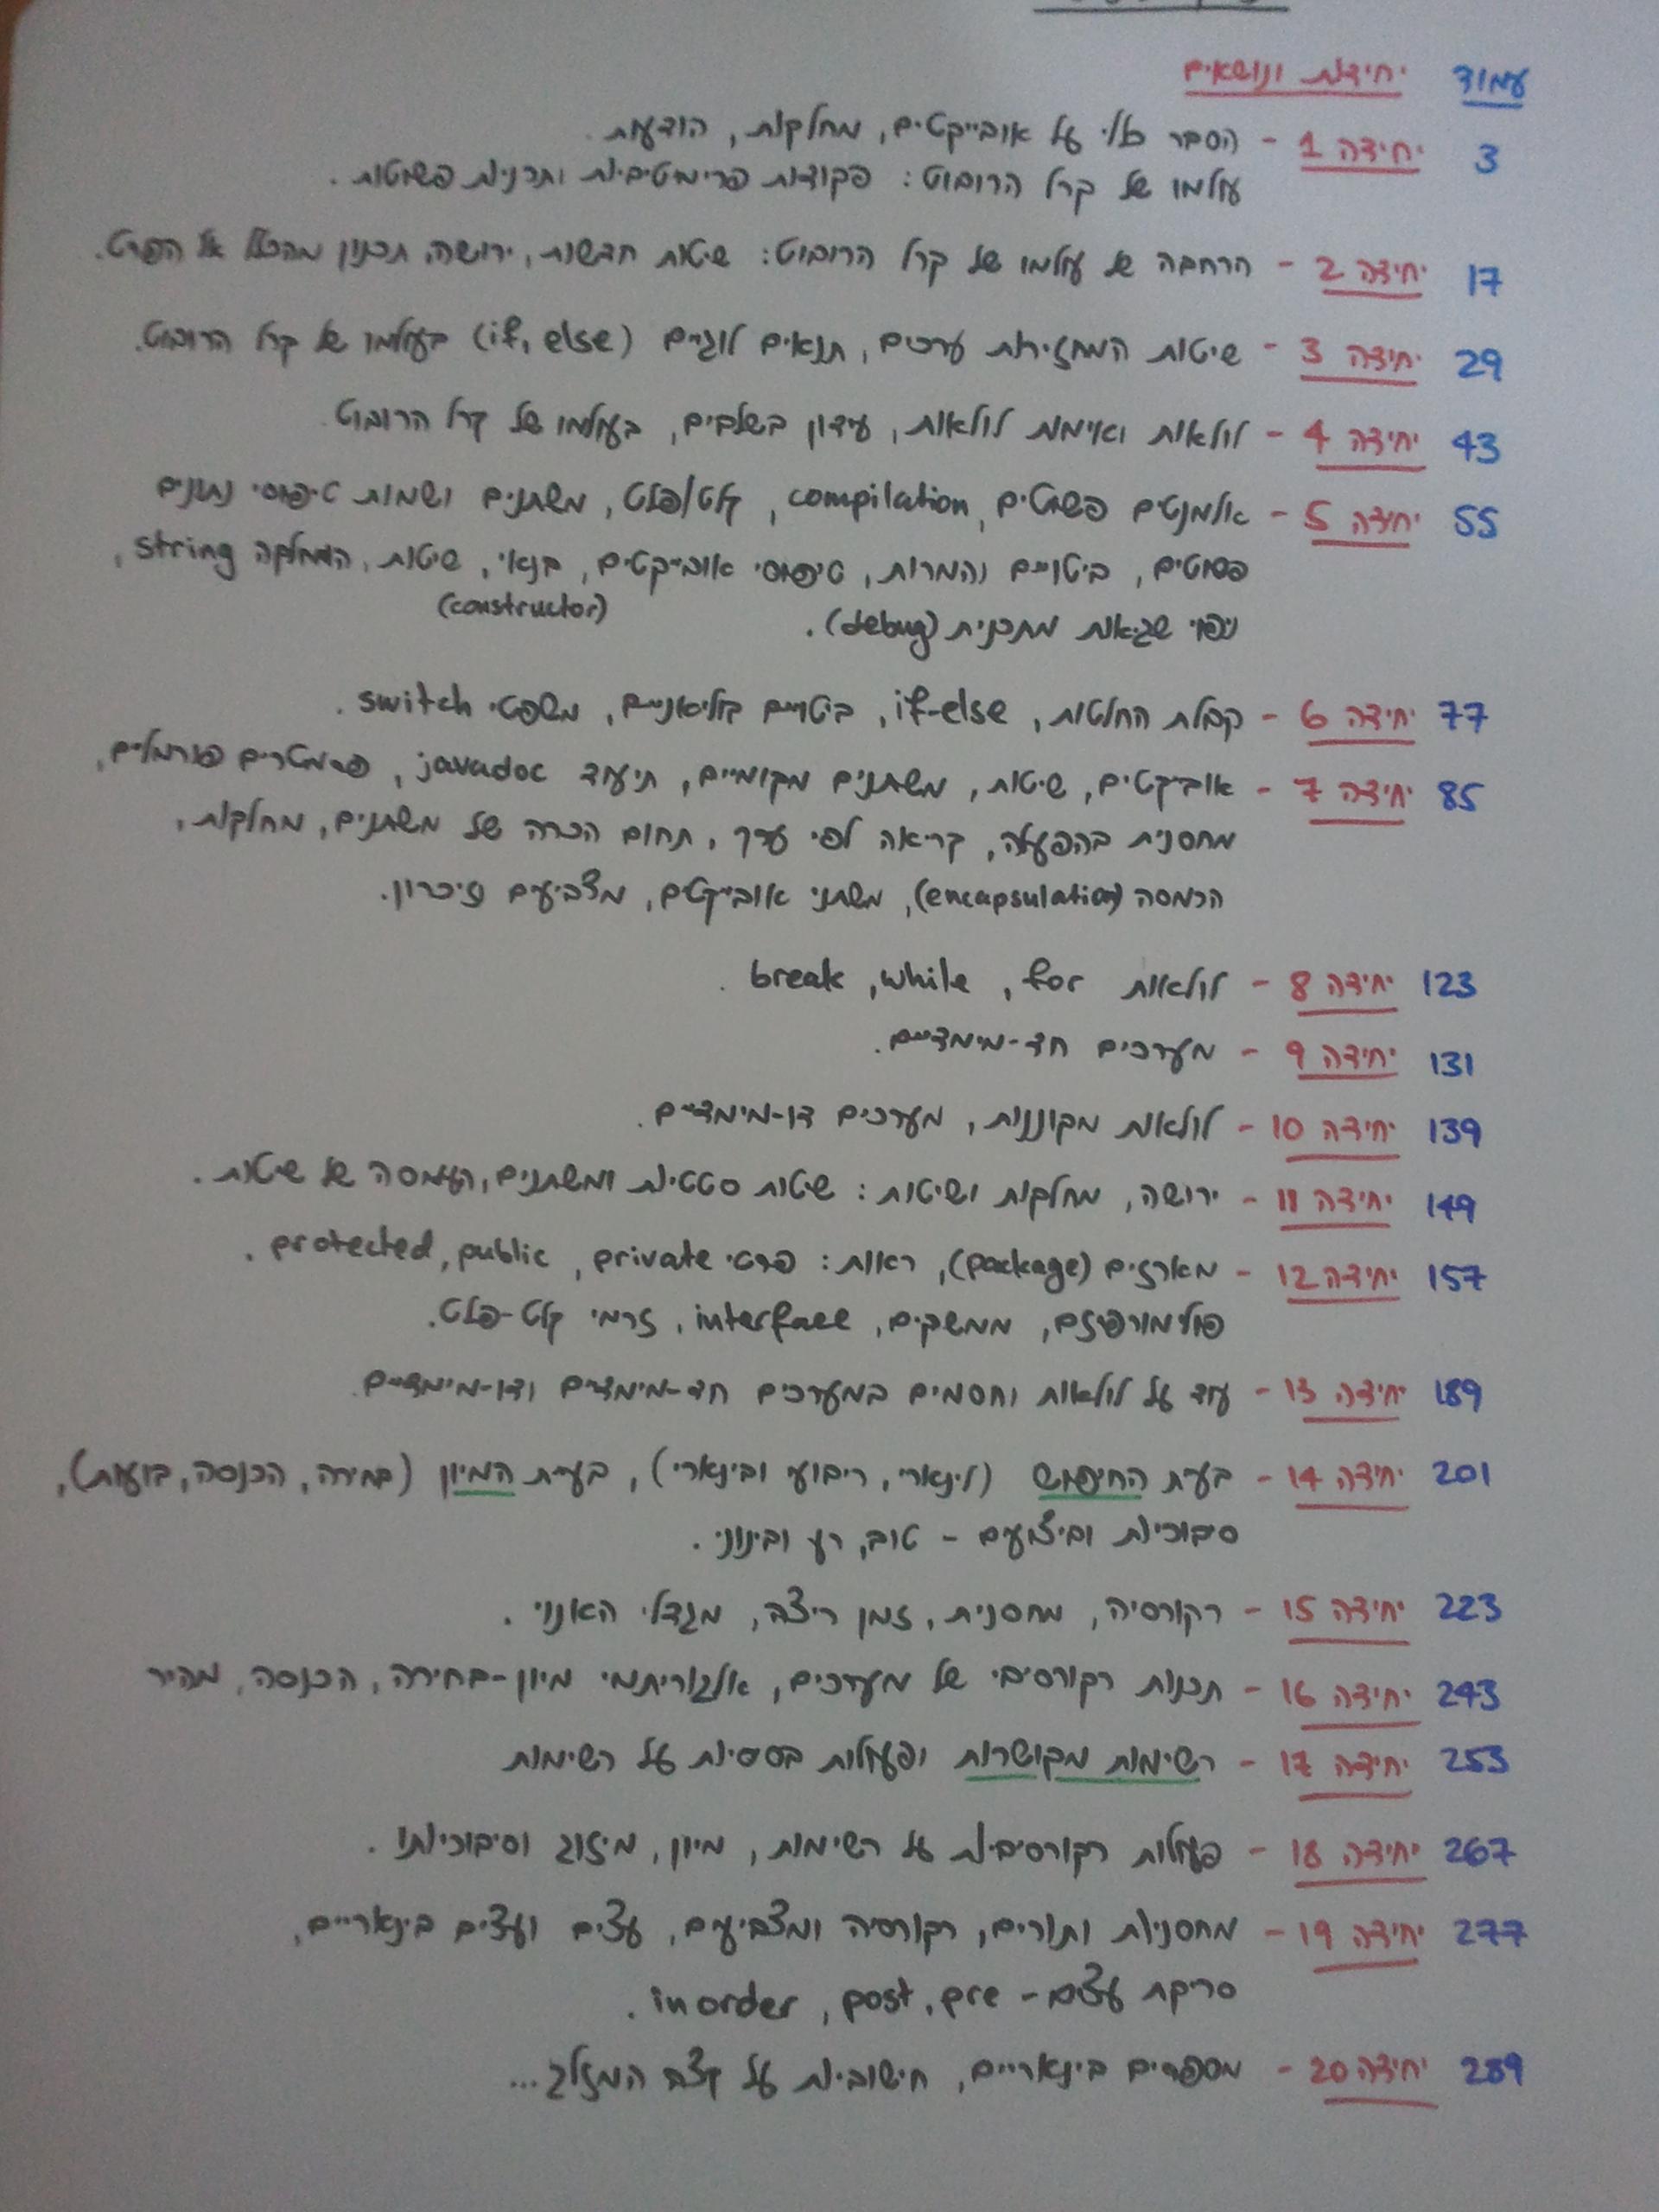 עמוד יחידות ונושאים
3 יחידה 1 - הסבר כללי על אובייקטים, מחלקות, הודעות.
עולמו של קרל הרובוט: פקודות פרימטיביות ותכניות פשוטות.
17 יחידה 2 - הרחבה של עולמו של קרל הרובוט: שיטות חדשות, ירושה, תכנון מהכלל אל הפרט.
29 יחידה 3 - שיטות המחזירות ערכים, תנאים לוגיים (if, else) בעולמו של קרל הרובוט.
43 יחידה 4 - לולאות ואימות לולאות, עידון בשלבים, בעולמו של קרל הרובוט.
55 יחידה 5 - אלמנטים פשוטים, compilation, קלט/פלט, משתנים ושמות טיפוסי נתונים
פשוטים, ביטויים והמרות, טיפוסי אובייקטים, בנאי, שיטות, המחלקה string,
(constructor)
ניפוי שגיאות מתכנית (debug).
77 יחידה 6 - קבלת החלטות, if-else, ביטויים בוליאניים, משפטי switch.
85 יחידה 7 - אובייקטים, שיטות, משתנים מקומיים, תיעוד javadoc, פרמטרים פורמליים,
מחסנית בהפעלה, קריאה לפי ערך, תחום הכרה של משתנים, מחלקות,
הכמסה (encapsulation), משתני אובייקטים, מצביעים וזיכרון.
123 יחידה 8 - לולאות for, while, break.
131 יחידה 9 - מערכים חד-מימדיים.
139 יחידה 10 - לולאות מקוננות, מערכים דו-מימדיים.
149 יחידה 11 - ירושה, מחלקות ושיטות: שיטות סטטיות ומשתנים, העמסה של שיטות.
157 יחידה 12 - מארזים (package), ראות: פרטי private, public, protected.
פולימורפיזם, ממשקים, interface, זרמי קלט-פלט.
189 יחידה 13 - עוד על לולאות וחסמים במערכים חד-מימדיים ודו-מימדיים.
201 יחידה 14 - בעית החיפוש (לינארי, ריבועי ובינארי), בעית המיון (בחירה, הכנסה, בועות),
סיבוכיות וביצועים - טוב, רע ובינוני.
223 יחידה 15 - רקורסיה, מחסנית, זמן ריצה, מגדלי האנוי.
243 יחידה 16 - תכנות רקורסיבי של מערכים, אלגוריתמי מיון-בחירה, הכנסה, מהיר
253 יחידה 17 - רשימות מקושרות ופעולות בסיסיות על רשימות
267 יחידה 18 - פעולות רקורסיביות על רשימות, מיון, מיזוג וסיבוכיותו.
277 יחידה 19 - מחסניות ותורים, רקורסיה ומצביעים, עצים ועצים בינאריים,
סריקת עצים - pre, post, inorder.
289 יחידה 20 - מספרים בינאריים, חישוביות על קצה המזלג...